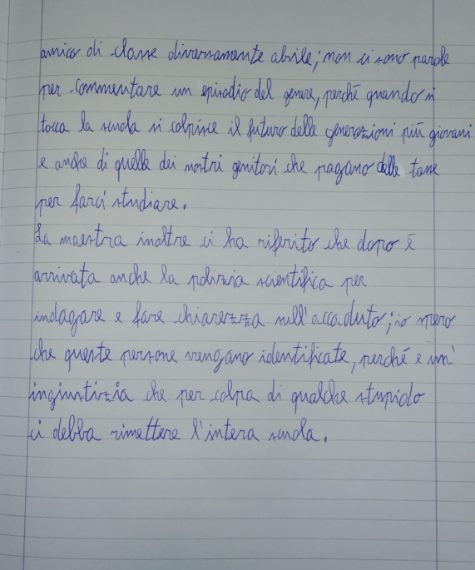 amico di classe diversamente abile; non ci sono parole
per commentare un episodio del genere, perché quando si
tocca la scuola si colpisce il futuro delle generazioni più giovani
e anche di quelle dei nostri genitori che pagano delle tasse
per farci studiare.
La maestra inoltre ci ha riferito che dopo è
arrivata anche la polizia scientifica per
indagare e fare chiarezza sull'accaduto; io spero
che queste persone vengano identificate, perché è un'
ingiustizia che per colpa di qualche stupido
ci debba rimettere l'intera scuola.